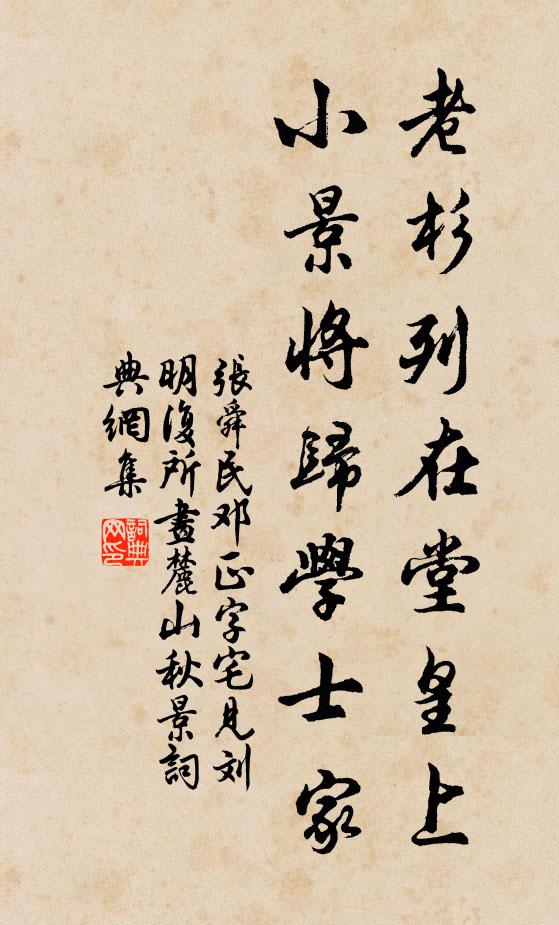 老杉列在堂皇上
小景將歸學士家
張舜民邓正字宅見刘
明復所畫麓山秋景詞
典網集
詞典
网印